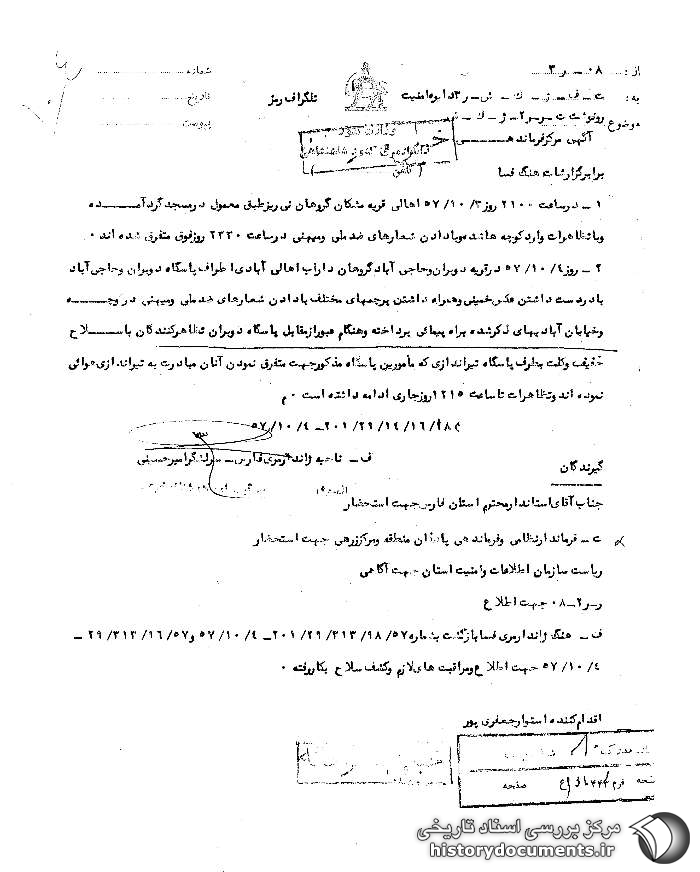 از : ۰۸ ـ ر۳
شماره
به : ت ـ ف ـ ژ ـ ك ـ ش ـ ر۳ اداره امنیت
تلگراف رمز
تاریخ
موضوع
رونوشت ت ـ ر ـ ر۲ ـ ژ ـ ك ـ ش
پیوست
آگهی مرکز فرماندهی
وزارت کشور
ژاندارمری کشور شاهنشاهی
برابر گزارشات هنگ فسا
۱ ـ در ساعت ۲۱۰۰ روز ۵۷/۱۰/۳ اهالی قریه مشکان گروهان نی ریز طبق معمول در مسجد گرد آمده
وبا تظاهرات وارد کوچه ها شده وبا دادن شعارهای ضد ملی ومیهنی در ساعت ۲۲۳۰ روز فوق متفرق شده اند ۰
۲ ـ روز ۵۷/۱۰/۴ در قریه دوبران وحاجی آباد گروهان داراب اهالی آبادی اطراف پاسگاه دوبران وحاجی آباد
با در دست داشتن عکس خمینی وهمراه داشتن پرچمهای مختلف با دادن شعارهای ضد ملی ومیهنی در وچه
وخیابان آبادیهای ذکر شده براه پیمائی پرداخته وهنگام عبور از مقابل پاسگاه دوبران تظاهر کنندگان با سلاح
خفیف وکلت بطرف پاسگاه تیراندازی که مأمورین پاسگاه مذکور جهت متفرق نمودن آنان مبادرت به تیراندازی هوائی
نموده اند وتظاهرات تا ساعت ۱۲۱۵ روز جاری ادامه داشته است ۰ م
۲۰۱/۲۹/۱۴/۱۶/۹۸۴ ـ ۵۷/۱۰/۴
ف ـ ناحیه ژاندارمری فارس ـ سرلشگر امیر حسینی
گیرندگان
جناب آقای استاندار محترم استان فارس جهت استحضار
ت ـ فرماندار نظامی وفرماندهی پادگان منطقه ومرکز زرهی جهت استحضار
ریاست سازمان اطلاعات وامنیت استان جهت آگاهی
ر ـ ر۲ ـ ۰۸ جهت اطلاع
ف ـ هنگ ژاندارمری فسا بازگشت بشماره ۲۰۱/۲۹/۳۱۳/۹۸/۵۷ ـ ۵۷/۱۰/۴ و ۲۹/۳۱۳/۱۶/۵۷ ـ
۵۷/۱۰/۴ جهت اطلاع ومراقبت های لازم وکشف سلاح بکار رفته ۰
اقدام کننده استوار جعفری پور
صفحه
مرکز بررسی اسناد تاریخی
historydocuments.ir